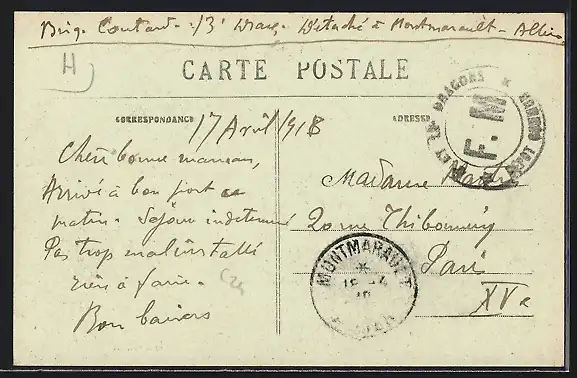 Brig. Coutard - 13e Drag. Détaché à Montmarault - Allier
H
CARTE POSTALE
CORRESPONDANCE
ADRESSE
17 Avril 1918
Chère bonne maman,
Arrivé à bon port ce
matin. Séjour indéterminé
Pas trop mal installé
rien à faire.
Bons baisers
Madame
20 rue Thiboumery
Paris
XVe
DRAGONS
F. M
MONTMARAULT
ALLIER